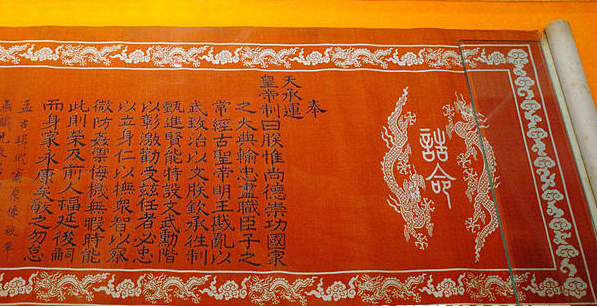 誥命
奉
天承運
皇帝制曰朕惟尚德崇功國家
之大典輸忠盡職臣子之
常經古聖帝明王戡亂以
武致治以文朕欽承往制
甄進賢能特設文武勳階
以彰激勸受茲任者必忠
以立身仁以撫衆智以察
微防姦禦侮機無暇時能
此則榮及前人福延後嗣
而身家永康矣敬之勿怠